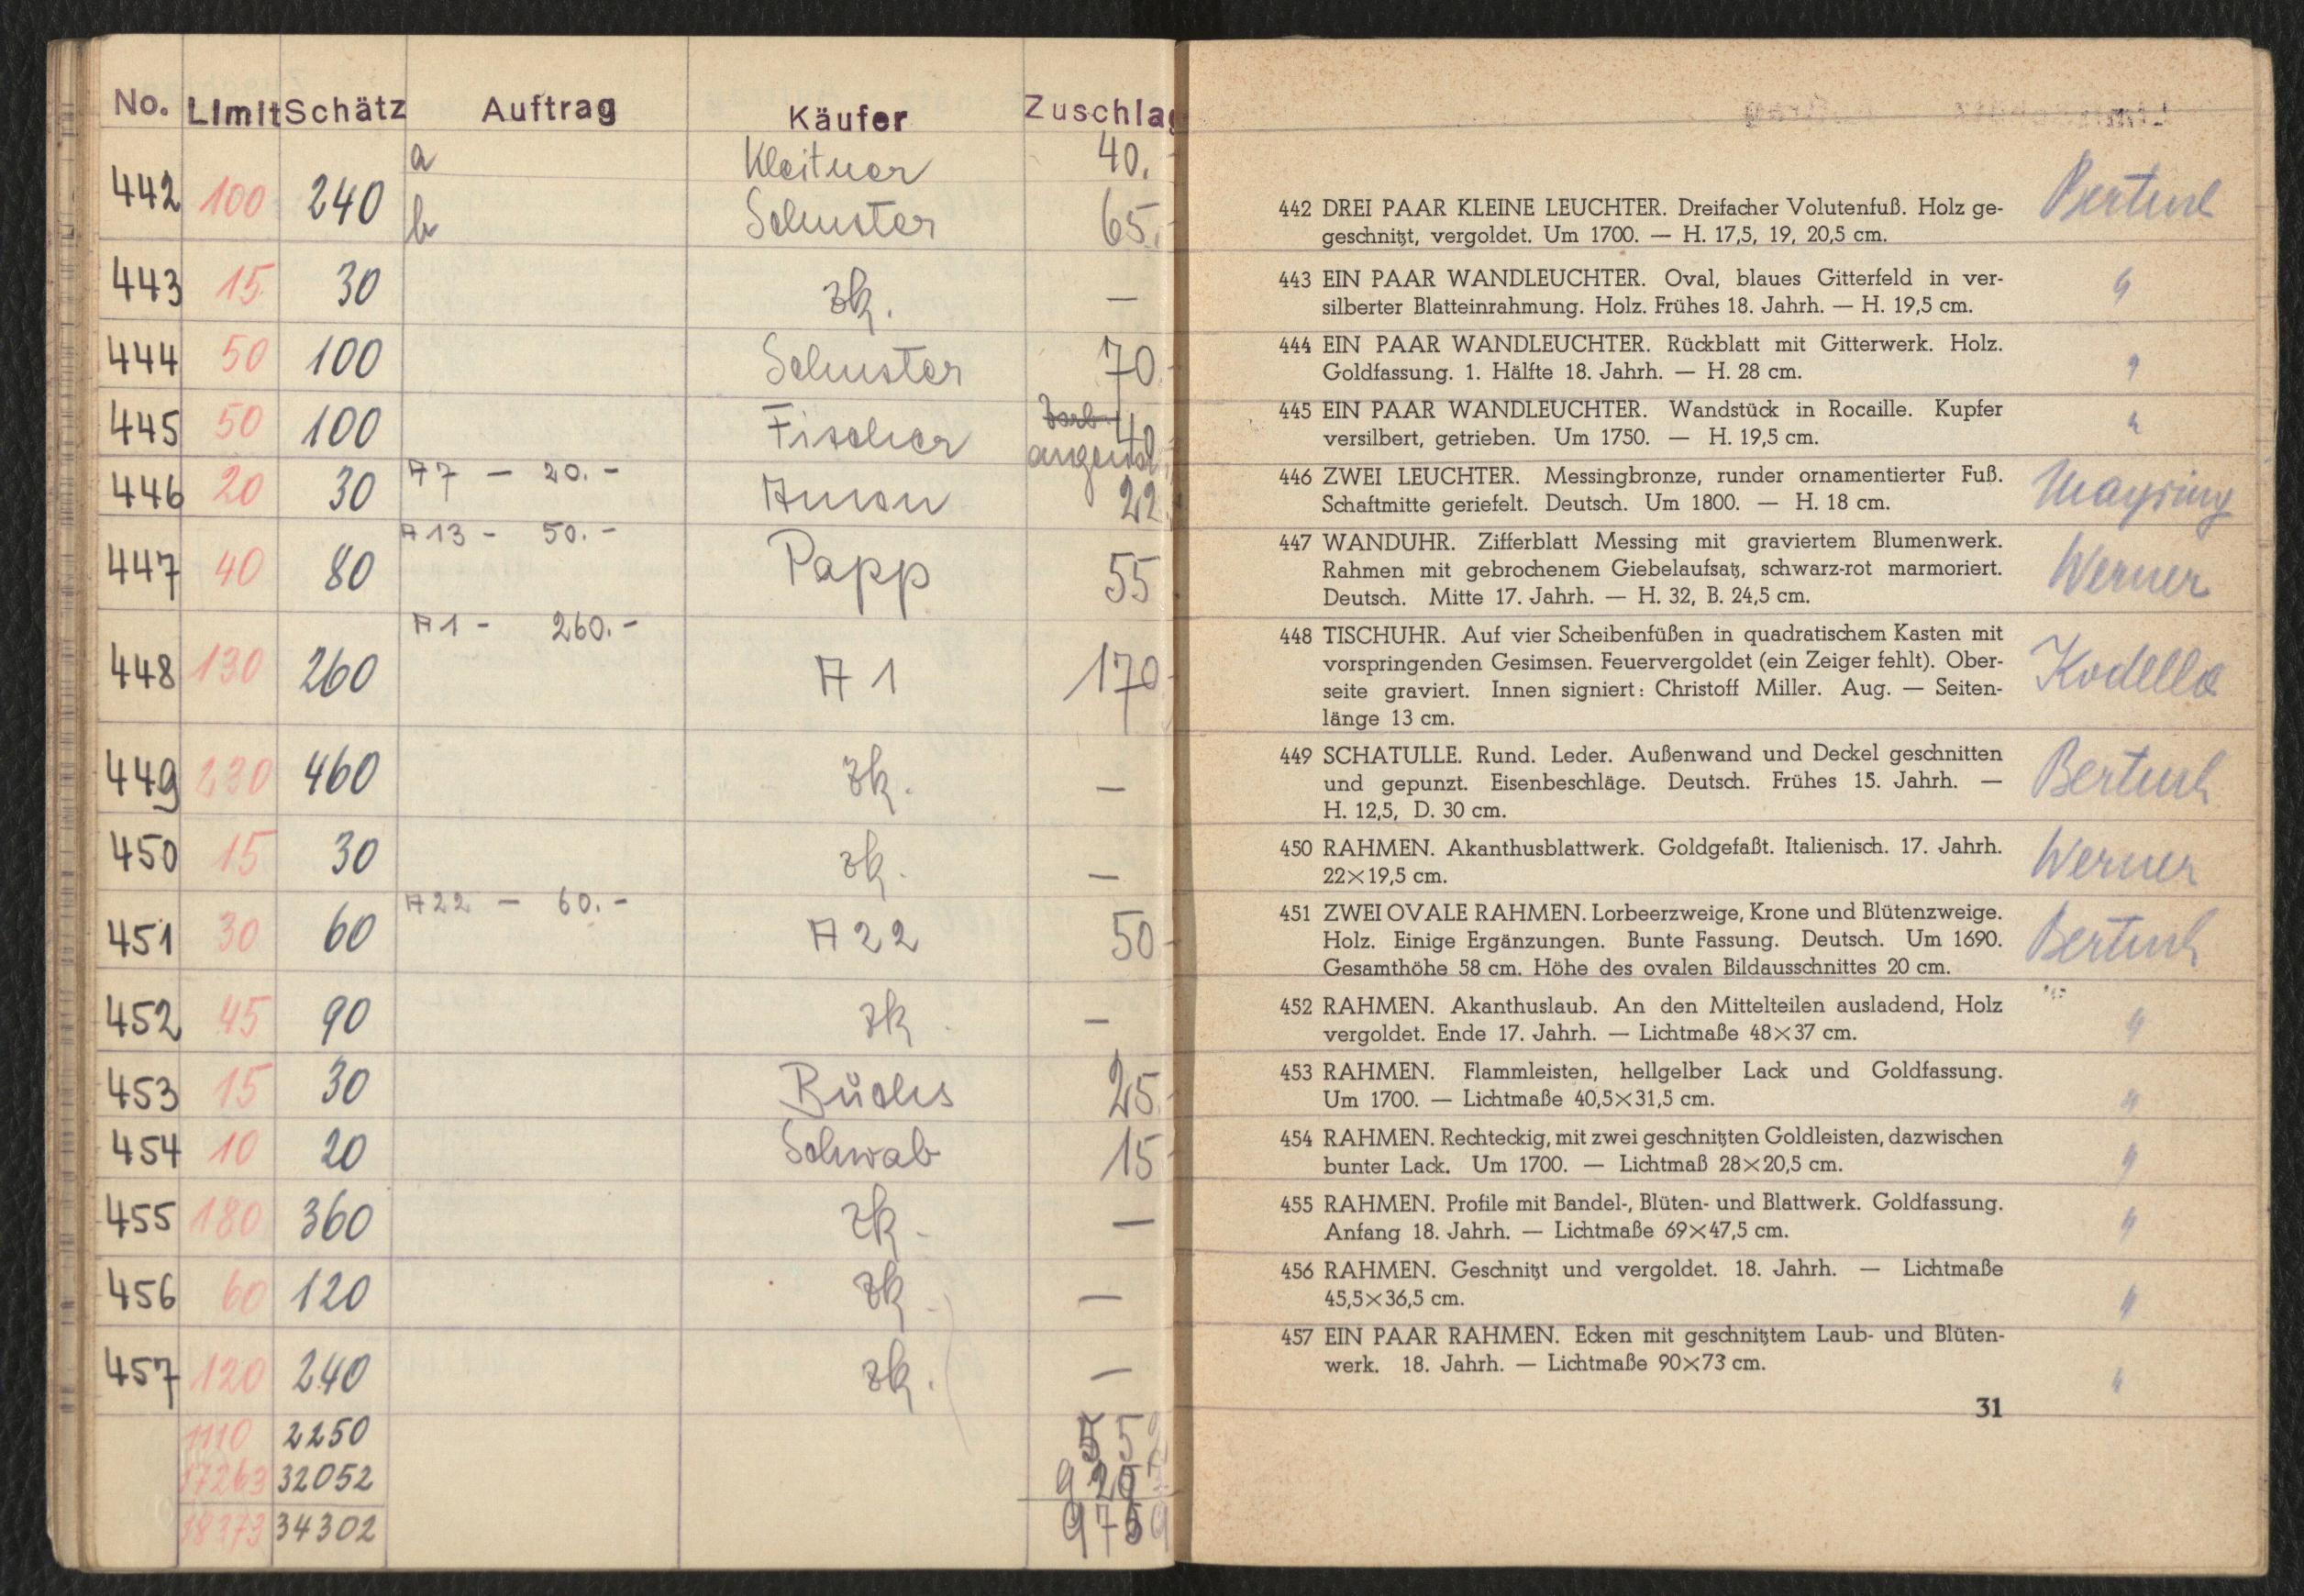 No. Limit Schätz Auftrag Käufer Zuschlag
442 100 240 a Kleitner 40.-
b Schuster 65.-
443 15 30 zk. —
444 50 100 Schuster 70.-
445 50 100 Fischer 40.-
446 20 30 A7 — 20.- 22.-
447 40 80 A13 - 50.- Papp 55
448 130 260 A1 - 260.- A1 170.-
449 230 460 zk. —
450 15 30 zk. —
451 30 60 A22 — 60.- A22 50.-
452 45 90 zk. —
453 15 30 Büchs 25.-
454 10 20 Schwab 15.-
455 180 360 zk. —
456 60 120 zk. —
457 120 240 zk. —
1110 2250 552
17263 32052
18373 34302
442 DREI PAAR KLEINE LEUCHTER. Dreifacher Volutenfuß. Holz ge-
geschnitzt, vergoldet. Um 1700. — H. 17,5, 19, 20,5 cm.
443 EIN PAAR WANDLEUCHTER. Oval, blaues Gitterfeld in ver-
silberter Blatteinrahmung. Holz. Frühes 18. Jahrh. — H. 19,5 cm. "
444 EIN PAAR WANDLEUCHTER. Rückblatt mit Gitterwerk. Holz.
Goldfassung. 1. Hälfte 18. Jahrh. — H. 28 cm. "
445 EIN PAAR WANDLEUCHTER. Wandstück in Rocaille. Kupfer
versilbert, getrieben. Um 1750. — H. 19,5 cm. "
446 ZWEI LEUCHTER. Messingbronze, runder ornamentierter Fuß. Mayring
Schaftmitte geriefelt. Deutsch. Um 1800. — H. 18 cm.
447 WANDUHR. Zifferblatt Messing mit graviertem Blumenwerk.
Rahmen mit gebrochenem Giebelaufsatz, schwarz-rot marmoriert. Werner
Deutsch. Mitte 17. Jahrh. — H. 32, B. 24,5 cm.
448 TISCHUHR. Auf vier Scheibenfüßen in quadratischem Kasten mit
vorspringenden Gesimsen. Feuervergoldet (ein Zeiger fehlt). Ober- Kodella
seite graviert. Innen signiert: Christoff Miller. Aug. — Seiten-
länge 13 cm.
449 SCHATULLE. Rund. Leder. Außenwand und Deckel geschnitten
und gepunzt. Eisenbeschläge. Deutsch. Frühes 15. Jahrh. —
H. 12,5, D. 30 cm.
450 RAHMEN. Akanthusblattwerk. Goldgefaßt. Italienisch. 17. Jahrh. Werner
22×19,5 cm.
451 ZWEI OVALE RAHMEN. Lorbeerzweige, Krone und Blütenzweige.
Holz. Einige Ergänzungen. Bunte Fassung. Deutsch. Um 1690.
Gesamthöhe 58 cm. Höhe des ovalen Bildausschnittes 20 cm.
452 RAHMEN. Akanthuslaub. An den Mittelteilen ausladend, Holz
vergoldet. Ende 17. Jahrh. — Lichtmaße 48×37 cm. "
453 RAHMEN. Flammleisten, hellgelber Lack und Goldfassung.
Um 1700. — Lichtmaße 40,5×31,5 cm. "
454 RAHMEN. Rechteckig, mit zwei geschnitzten Goldleisten, dazwischen
bunter Lack. Um 1700. — Lichtmaß 28×20,5 cm. "
455 RAHMEN. Profile mit Bandel-, Blüten- und Blattwerk. Goldfassung.
Anfang 18. Jahrh. — Lichtmaße 69×47,5 cm. "
456 RAHMEN. Geschnitzt und vergoldet. 18. Jahrh. — Lichtmaße
45,5×36,5 cm. "
457 EIN PAAR RAHMEN. Ecken mit geschnitztem Laub- und Blüten-
werk. 18. Jahrh. — Lichtmaße 90×73 cm. "
31